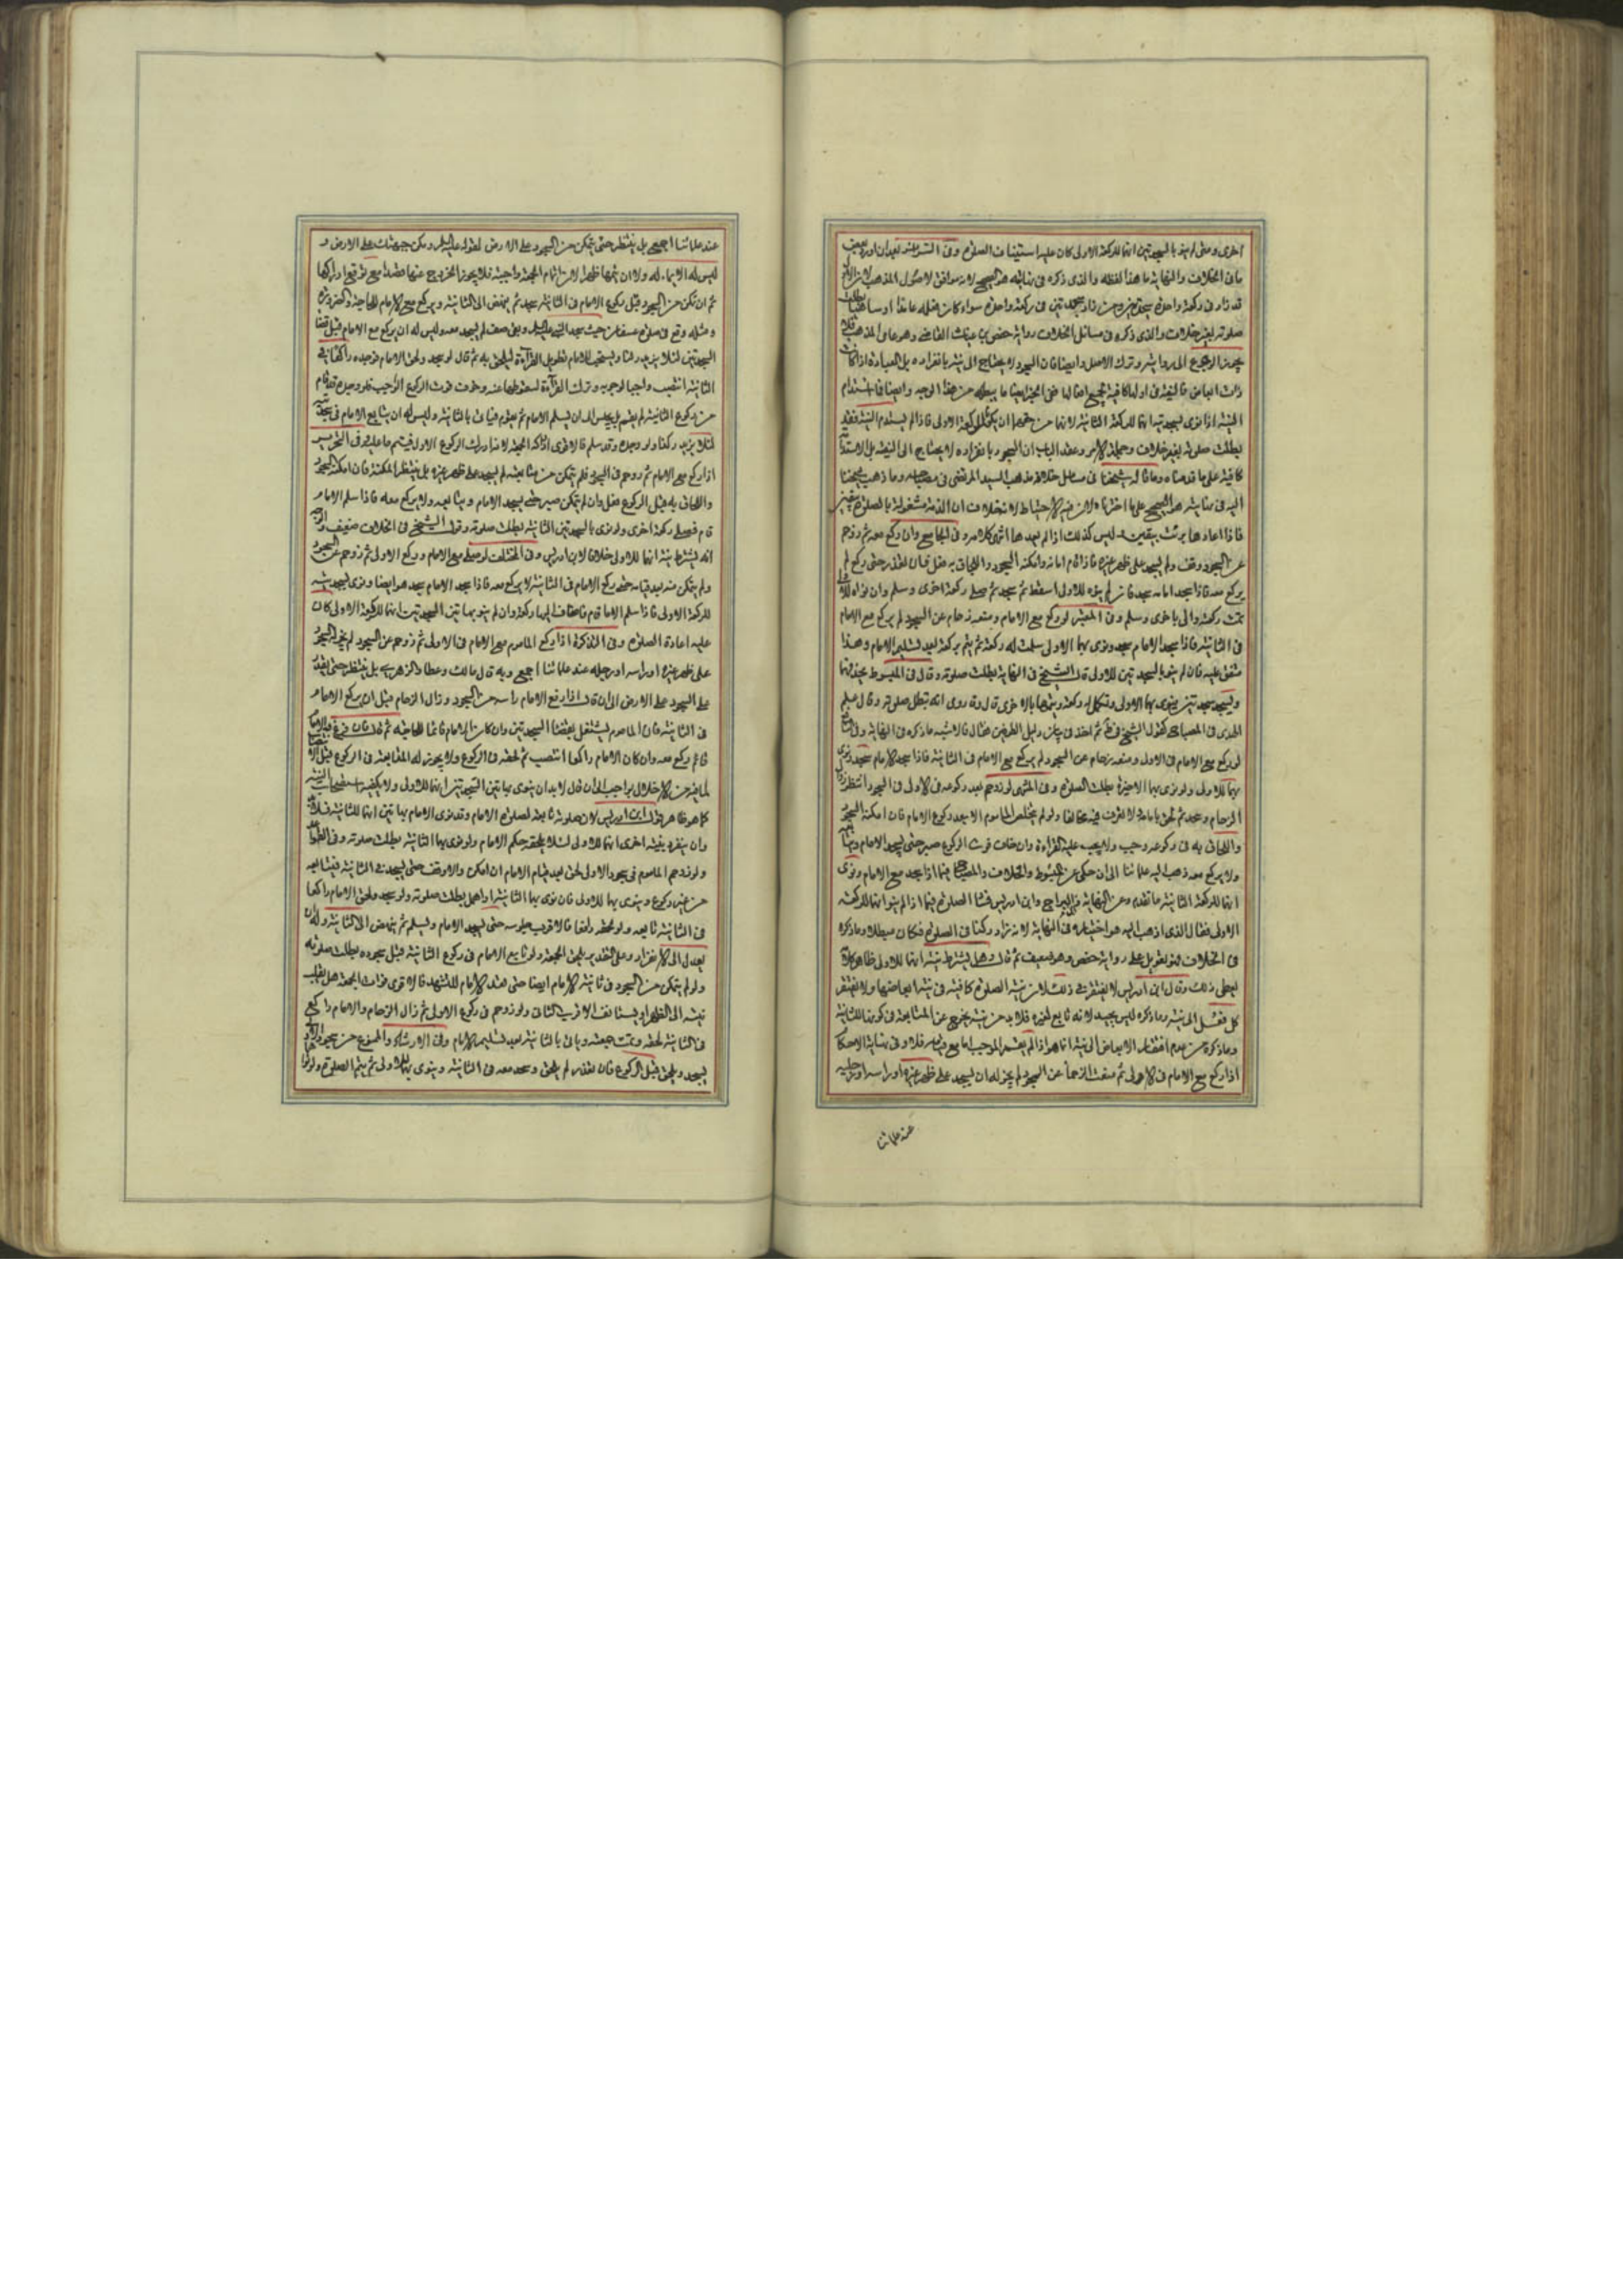 اخرى ومتى لم ينو بالسجدتين انهما للركعة الاولى كان عليه استيناف الصلوة وفى السرائر بعد ان اورد بعض
ما فى الخلاف والنهاية ما هذا لفظه والذى ذكره فى نهايته هو الصحيح لانه موافق لاصول المذهب لان
قد زاد فى ركعة واحدة سجدتين ومن زاد سجدتين فى ركعة واحدة سواء كان فعله عامدا او ساهيا بطلت
صلوته بغير خلاف والذى ذكره فى مسائل الخلاف رواية حفص بن غياث القاضى وهو عامى المذهب فلا
يجوز الرجوع الى روايته وترك الاصل وايضا فان السجود لا يحتاج الى نية بانفراده بل العبادة اذا كانت
ذات ابعاض فالنية فى اولها كافية لجميع افعالها
النية اذا نوى بسجدتيه انهما للركعة الثانية لانهما من حقهما ان يكونا للركعة الاولى فاذا لم يستدم النية فقد
بطلت صلوته بغير خلاف وجملة الامر وعقد الباب ان السجود بانفراده لا يحتاج الى النية بل الاستدامة
كافية على ما قدمناه وما قاله شيخنا فى مسائل خلافه مذهب السيد المرتضى فى مصباحه وما ذهب شيخنا
اليه فى نهايته هو الصحيح على ما اخترناه لان فيه الاحتياط لانه لا خلاف ان الذمة مشغولة بالصلوة بيقين
فاذا اعادها برئت بيقين وليس كذلك اذا لم يعدها انتهى كلامه وفى الجامع وان ركع معه ثم زوحم
عن السجود وقف ولم يسجد على ظهر غيره فاذا قام امامه وامكنه السجود واللحاق به فعل فان تعذر حتى ركع لم
يركع معه فاذا سجد امامه سجد فان لم ينوه للاولى اسقطه ثم سجد ثم صلى ركعة اخرى وسلم وان نواه للاولى
تمت ركعة واتى باخرى وسلم وفى المعتبر لو ركع مع الامام ومنعه زحام عن السجود لم يركع مع الامام
فى الثانية فاذا سجد الامام سجد ونوى بهما الاولى سلمت له ركعة ثم يتم بركعة بعد تسليم الامام وهذا
متفق عليه فان لم ينو بالسجدتين للاولى قال الشيخ فى النهاية بطلت صلوته وقال فى المبسوط يحذفهما
ويسجد سجدتين ينوى بهما الاولى وتكمل له ركعة ويتمها باخرى قال وقد روى انه تبطل صلوته وقال علم
الهدى فى المصباح كقول الشيخ فى ط ثم اخذ فى بيان دليل الطرفين فقال فالاشبه ما ذكره فى النهاية وفى
لو ركع مع الامام فى الاولى ومنعه زحام عن السجود لم يركع مع الامام فى الثانية فاذا سجد الامام سجد ونوى
بهما للاولى ولو نوى بهما الاخيرة بطلت الصلوة وفى المنتهى لو زوحم بعد ركوعه فى الاولى فى السجود انتظر زوال
الزحام وسجد ثم لحق بامامه لا نعرف فيه مخالفا ولو لم يتخلص الماموم الا بعد ركوع الامام فان امكنه السجود
واللحاق به فى ركوعه وجب ولا يجب عليه القراءة وان خاف فوت الركوع صبر حتى يسجد الامام
ولا يركع معه ذهب اليه علمائنا الى ان حكى عن المبسوط والخلاف والمصباح فيما اذا سجد مع الامام ونوى
انهما للركعة الثانية ما تقدم وعن النهاية وابن البراج وابن ادريس فساد الصلوة فيما اذا لم ينو انهما للركعة
الاولى فقال الذى اذهب اليه هو اختياره فى النهاية لانه زاد ركنا فى الصلوة فكان مبطلا وما ذكره
فى الخلاف فهو تعويل على رواية حفص وهو ضعيف ثم قال وهل يشترط نية انهما للاولى ظاهر كلامه
يعطى ذلك وقال ابن ادريس لا يفتقر الى ذلك لان نية الصلوة كافية فى نية ابعاضها ولا يفتقر
كل فعل الى نية وما ذكره ليس بجيد لانه تابع لغيره فلا بد من نية يخرج عن المتابعة فى كونهما للثانية
وما ذكره من عدم افتقار الابعاض الى نية انما هو اذا لم يقم الموجب اما مع قيامه فلا وفى نهاية الاحكام
اذا ركع مع الامام فى الاولى ثم منعه الزحام عن السجود لم يجز له ان يسجد على ظهر غيره او راسه او رجليه
عند علمائنا
عند علمائنا اجمع بل ينتظر حتى يتمكن من السجود على الارض لقوله عليه السلم ومكن جبهتك على الارض و
ليس له الايماء له ولا ان يتمها ظهرا لان اتمام الجمعة واجبة فلا يجوز الخروج عنها قصدا مع توقع ادراكها
ثم ان تمكن من السجود قبل ركوع الامام فى الثانية سجد ثم ينهض الى الثانية ويركع مع الامام للحاجة والضرورة
ومثله وقع فى صلوة عسفان حيث سجد النبى عليه السلم وبقى صف لم يسجد معه وليس له ان يركع مع الامام قبل قضاء
السجدتين لئلا يزيد ركنا ويستحب للامام تطويل القراءة ليلحق به ثم قال لو سجد ولحق الامام فوجده راكعا فى
الثانية انتصب
من ركوع الثانية لم يقم بل يجلس الى ان يسلم الامام ثم يقوم فياتى بالثانية وليس له ان يتابع الامام فى سجدتيه
لئلا يزيد ركنا ولو وجده وقد سلم فالاقوى ادراكه الجمعة لانه ادرك الركوع الاول فيتم ما عليه وفى التحرير
اذا ركع مع الامام ثم زوحم فى السجود فلم يتمكن من متابعته لم يسجد على ظهر غيره بل ينتظر المكنة فان امكنه السجود
واللحاق به قبل الركوع فعل وان لم يتمكن صبر حتى يسجد الامام ويتابعه ولا يركع معه فاذا سلم الامام
قام فصلى ركعة اخرى ولو نوى بالسجدتين الثانية بطلت صلوته وقول الشيخ فى الخلاف ضعيف والوجه
انه يشترط نية انهما للاولى خلافا لابن ادريس وفى المختلف لو صلى مع الامام وركع الاولى ثم زوحم عن السجود
ولم يتمكن منه بعد قيامه حتى ركع الامام فى الثانية لا يركع معه فاذا سجد الامام سجد هو ايضا ونوى بسجدتيه
للركعة الاولى فاذا سلم الامام قام فاضاف اليها ركعة وان لم ينو بهاتين السجدتين انهما للركعة الاولى كان
عليه اعادة الصلوة وفى التذكرة اذا ركع الماموم مع الامام فى الاولى ثم زوحم عن السجود لم يجز السجود
على ظهر غيره او راسه او رجله عند علمائنا اجمع وبه قال مالك وعطا والزهرى بل ينتظر حتى يقدر
على السجود على الارض الى ان قال اذا رفع الامام راسه من السجود وزال الزحام قبل ان يركع الامام
فى الثانية فان الماموم يشتغل بقضاء السجدتين وان كان الامام قائما للحاجة ثم قال فان فرغ والامام
قائم ركع معه وان كان الامام راكعا انتصب ثم لحقه فى الركوع ولا يجوز له المتابعة فى الركوع قبل الانتصاب
لما فيه من الاخلال بواجب الى ان قال لا بد ان ينوى بهاتين السجدتين انهما للاولى ولا يكفيه استصحاب النية
كما هو ظاهر قول ابن ادريس لان صلوته تابعة لصلوة الامام وقد نوى الامام بهاتين انهما للثانية فلا بد
وان ينفرد بنية اخرى انهما للاولى لئلا يلحقه حكم الامام ولو نوى بهما الثانية بطلت صلوته وفى القواعد
ولو زوحم الماموم فى سجود الاولى لحق بعد قيام الامام ان امكن والا وقف حتى يسجد فى الثانية فيتابعه
من غير ركوع وينوى بهما للاولى فان نوى بهما الثانية او اهمل بطلت صلوته ولو سجد ولحق الامام راكعا
فى الثانية تابعه ولو لحقه رافعا فالاقرب جلوسه حتى يسجد الامام ويسلم ثم ينهض الى الثانية وله ان
يعدل الى الانفراد وعلى التقديرين يلحق الجمعة ولو تابع الامام فى ركوع الثانية قبل سجوده بطلت صلوته
ولو لم يتمكن من السجود فى ثانية الامام ايضا حتى قعد الامام للتشهد فالاقوى فوات الجمعة هل يقلب
نيته الى الظهر او يستانف الاقرب الثانى ولو زوحم فى ركوع الاولى ثم زال الزحام والامام راكع
فى الثانية لحقه وتمت جمعته وياتى بالثانية بعد تسليم الامام وفى الارشاد والممنوع من سجود الاولى
يسجد ويلحق قبل الركوع فان تعذر لم يلحق وسجد معه فى الثانية وينوى بهما للاولى ثم يتم الصلوة ولو نوى